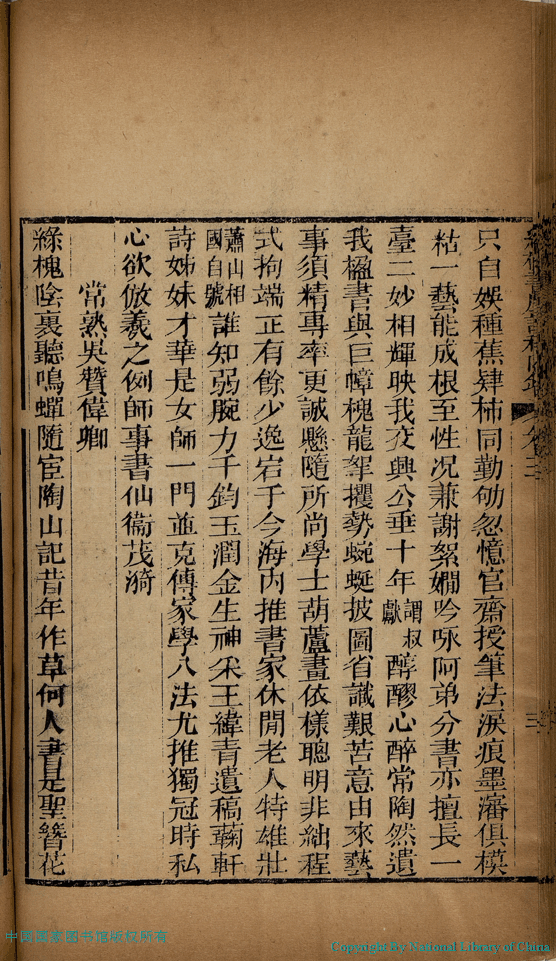 只自娛種蕉肄柿同勤劬忽憶官齋授筆法淚痕墨瀋俱模
粘一藝能成根至性况兼謝絮嫺吟咏阿弟分書亦擅長一
臺二妙相輝映我交興公垂十年謂叔獻醇醪心醉常陶然遺
我楹書與巨幛槐龍拏攫勢蜿蜒披圖省識艱苦意由來藝
事須精專率更誠懸隨所尚學士葫蘆畫依樣聰明非絀程
式拘端正有餘少逸宕于今海內推書家休閒老人特雄壯
蕭山相國自號誰知弱腕力千鈞玉潤金生神采王緯青遺稿蘜軒
詩姊妹才華是女師一門並克傳家學八法尤推獨冠時私
心欲倣羲之例師事書仙衞茂漪
常熟吳贊偉卿
綠槐陰裏聽鳴蟬隨宦陶山記昔年作草何人書是聖簪花
卷三
三
中國國家图书馆版权所有
Copyright By National Library of China